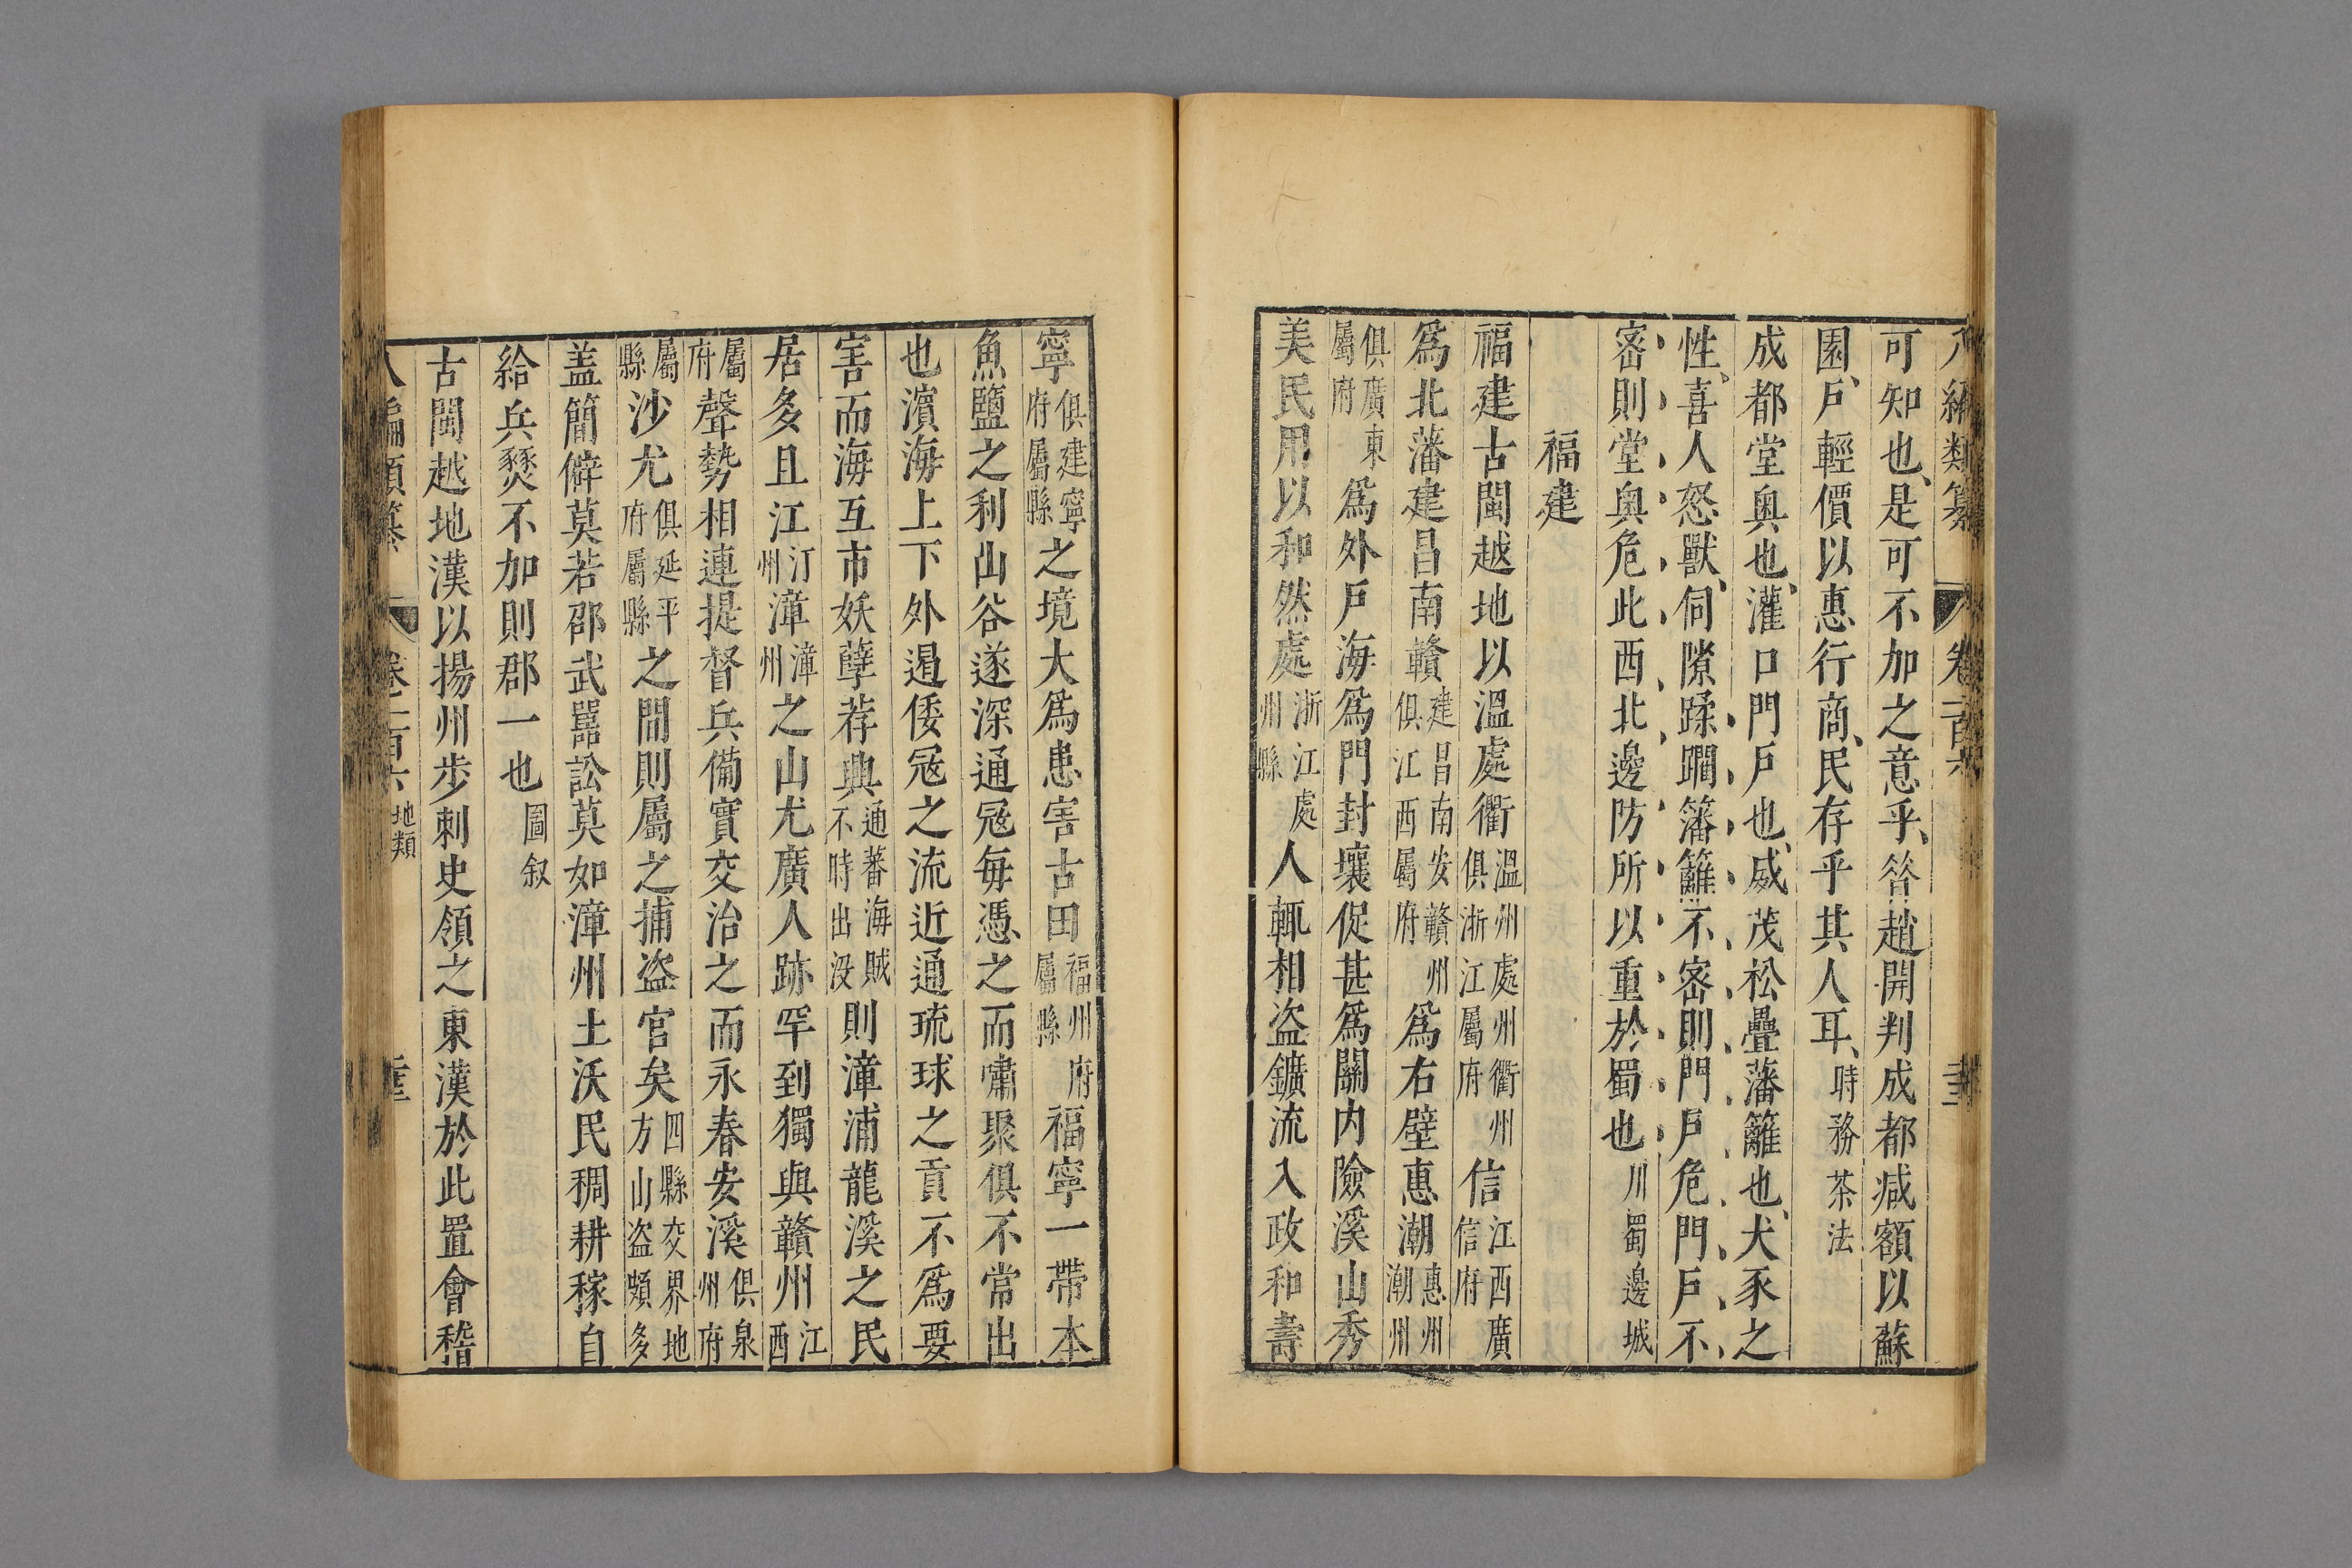 八編類纂 卷一百六
可知也、是可不加之意乎、昝趙開判成都減額以蘇
園、戶輕價以惠行商、民存乎其人耳、時務茶法
成都堂奧也、灌口門戶也、威茂松疊藩籬也、犬豕之
性、喜人怒獸、伺隙蹂躪籓籬不宻則門戶危門戶不
宻則堂奧危此西北邊防所以重於蜀也川蜀邊城
福建
福建古閩越地以溫處衢溫州處州衢州俱浙江屬府信江西廣信府
爲北藩建昌南贛建昌南安贛州俱江西屬府爲右壁惠潮惠州潮州
俱廣東屬府爲外戶海爲門封壤促甚爲關内險溪山秀
美民用以和然處浙江處州縣人輒相盗鑛流入政和壽
寧俱建寧府屬縣之境大爲患害古田福州府屬縣福寧一帶本
魚鹽之利山谷遂深通冦每憑之而嘯聚俱不常出
也濵海上下外遏倭冦之流近通琉球之貢不爲要
害而海互市妖孽荐興通蕃海賊不時出没則漳浦龍溪之民
居多且江汀州漳漳州之山尤廣人跡罕到獨與贛州江西
屬府聲勢相連提督兵備實交治之而永春安溪俱泉州府
屬縣沙尤俱延平府屬縣之間則屬之捕盗官矣四縣交界地方山盗頗多
盖簡僻莫若邵武嚚訟莫如漳州土沃民稠耕稼自
給兵燹不加則郡一也圖叙
古閩越地漢以揚州步刺史領之東漢於此置會稽
八編類纂 卷一百六 地類